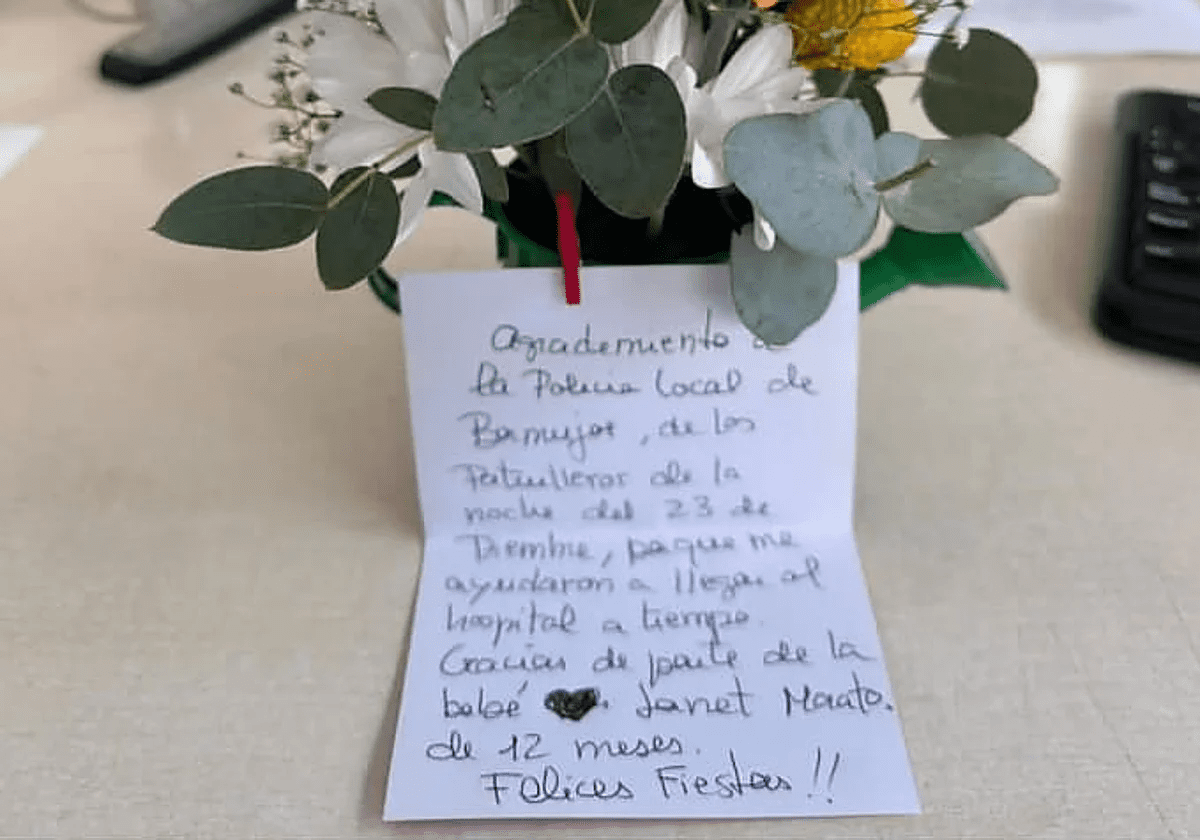 Agradecimiento a
la Policia Local de
Benujar, de los
Patrulleros de la
noche del 23 de
Diembre, paque me
ayudaron a llegar al
hospital a tiempo.
Gracias de parte de la
bebé Janet Maato.
de 12 meses.
Felices Fiestas!!